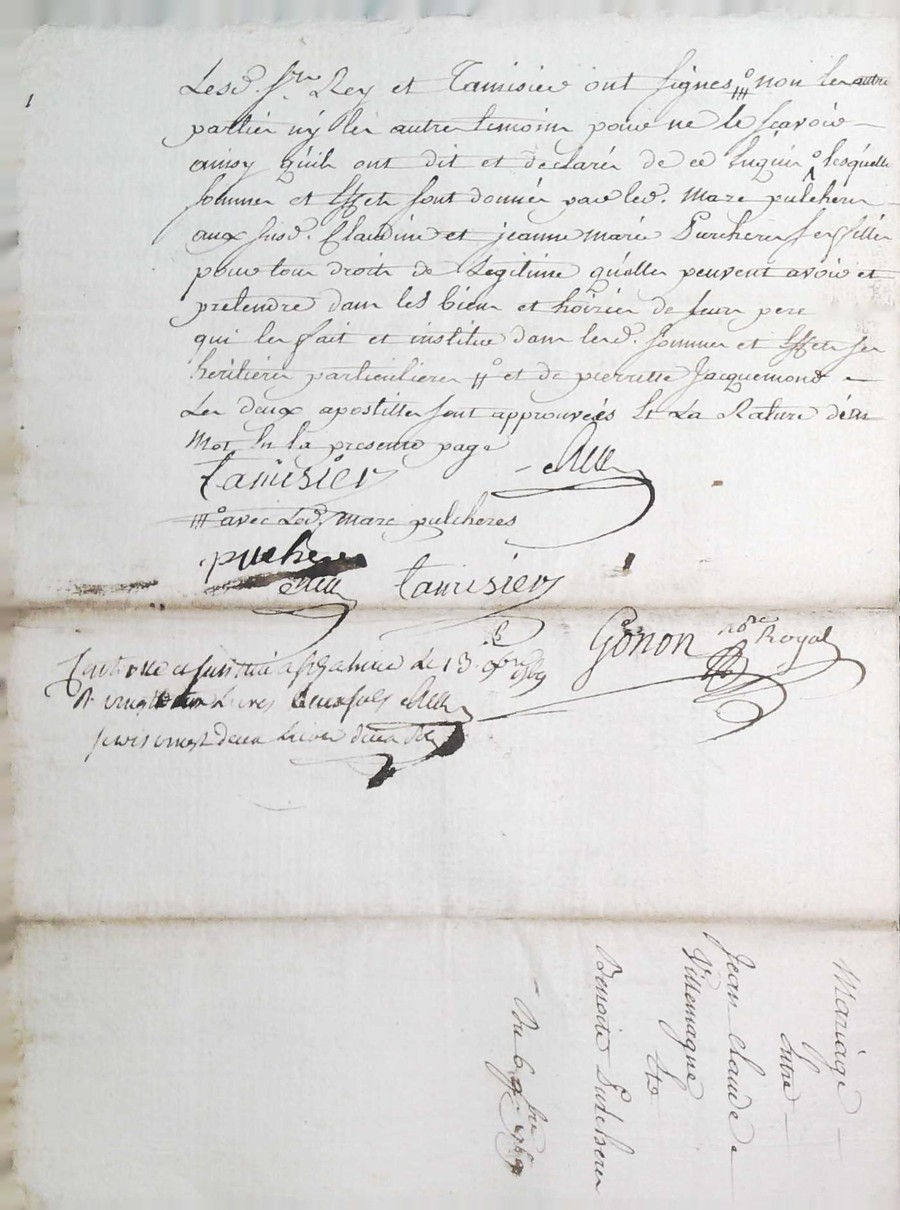 Lesd. Srs Rey et Tamisier ont signes non les autre
parties ny les autres temoins pour ne le scavoir
ainsy quils ont dit et declarés de ce enquis lesquelles
sommes et effets sont donnés par led. Marc pulcheres
aux susd. Claudine et jeanne marie Purcheres ses filles
pour tous droits de Legitime quelles peuvent avoir et
pretendre dans les biens et hoiries de leurs pere
qui les fait et institue dans lesd. sommes et effets ses
heritieres particulieres et de pierrette Jacquemond
Les deux apostilles sont approuvées et La Rature dun
Mot en la presente page
Tamisier Rey
avec Led. Marc pulcheres
puche
Rey Tamisier
Gonon nore Royal
Controlle et insinué a Le 13 9bre
vingt Livres deux sols
vingt deux livres
Mariage
Entre
Jean Claude
Villemagne
Et
Benoite Pulcheres
Du 6 9bre